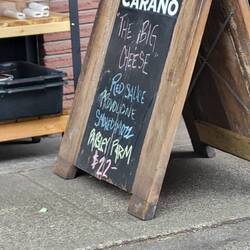 CARANO
"THE BIG
CHEESE"
RED SAUCE
PROVOLONE
SMOKED MOZZ
PARSLEY PARM
$22-